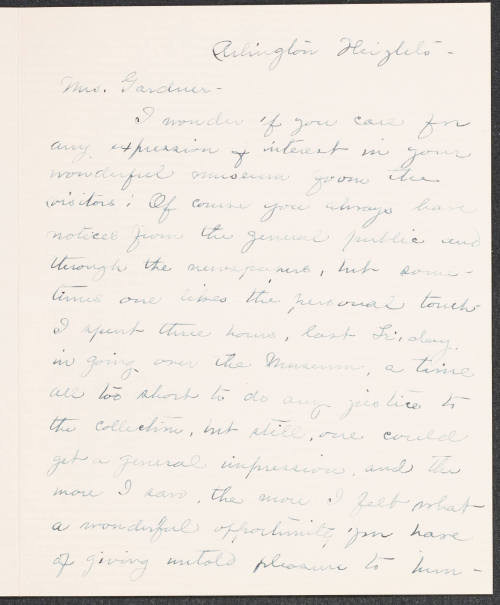 Arlington Heights -
Mrs. Gardner -
I wonder if you care for
any expression of interest in your
wonderful museum from the
visitors? Of course you always have
notices from the general public and
through the newspapers, but some-
times one likes the personal touch
I spent three hours, last Friday,
in going over the Museum, a time
all too short to do any justice to
the collection, but still, one could
get a general impression, and the
more I saw, the more I felt what
a wonderful opportunity you have
of giving untold pleasure to hun-